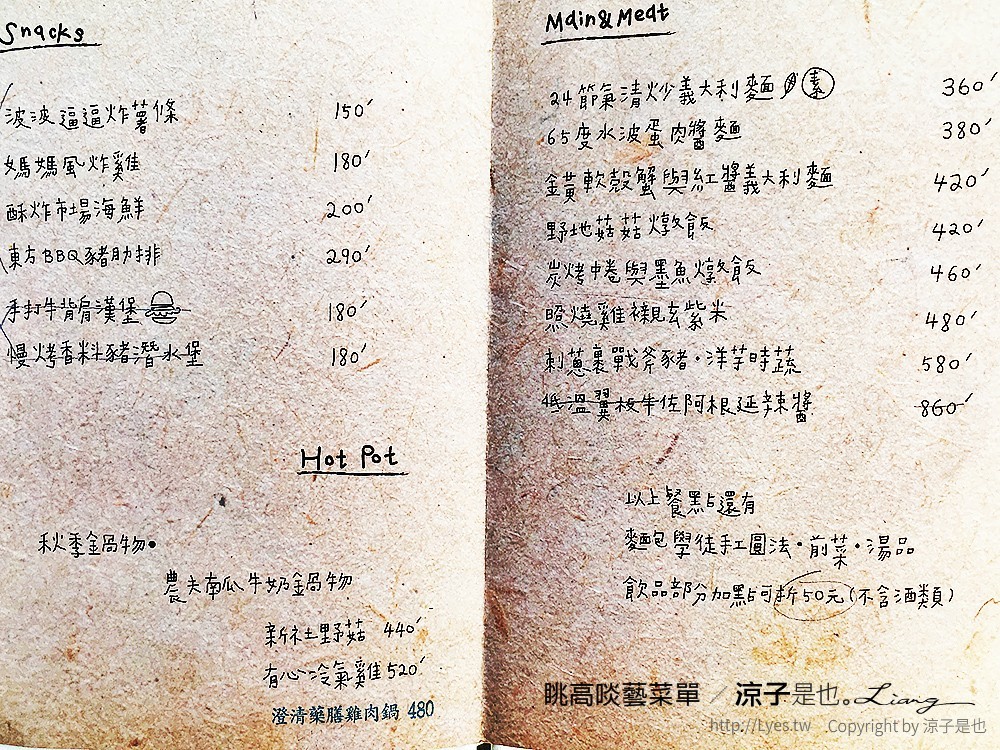 Snacks
波波逼逼炸薯條 150'
媽媽風炸雞 180'
酥炸市場海鮮 200'
東方BBQ豬肋排 290'
手打牛背肩漢堡 180'
慢烤香料豬潛水堡 180'
Hot Pot
秋季鍋物•
農夫南瓜牛奶鍋物
新社野菇 440'
有心冷氣雞 520'
澄清藥膳雞肉鍋 480
Main&Meat
24節氣清炒義大利麵 素 360'
65度水波蛋肉醬麵 380'
金黃軟殼蟹與紅醬義大利麵 420'
野地菇菇燉飯 420'
炭烤中卷與墨魚燉飯 460'
照燒雞襯玄紫米 480'
刺蔥裹戰斧豬·洋芋時蔬 580'
低溫翼板牛佐阿根廷辣醬 860'
以上餐點還有
麵包學徒手工圓法·前菜·湯品
飲品部分加點可折50元(不含酒類)
眺高啖藝菜單／涼子是也。Liang
http://Lyes.tw Copyright by 涼子是也